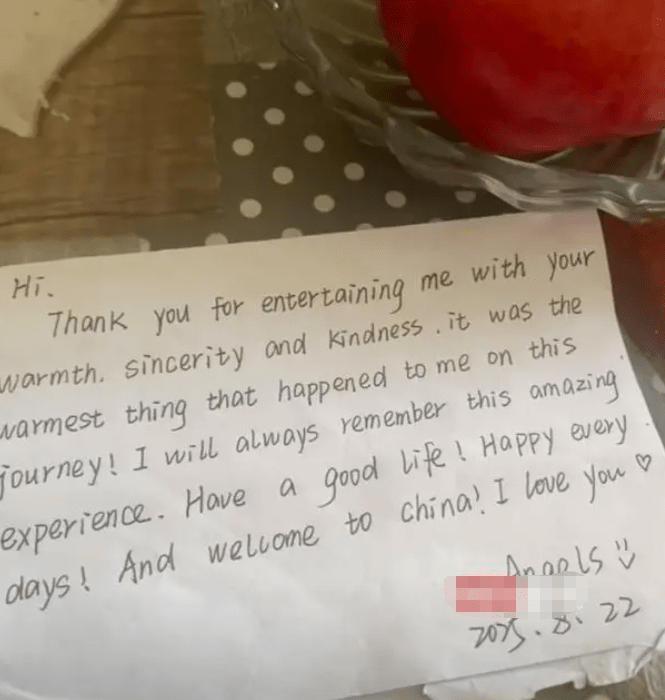 Hi.
Thank you for entertaining me with your
warmth. sincerity and kindness. it was the
warmest thing that happened to me on this
journey! I will always remember this amazing
experience. Have a good life! Happy every
days! And welcome to china! I love you ♡
Angels
2025. 8. 22